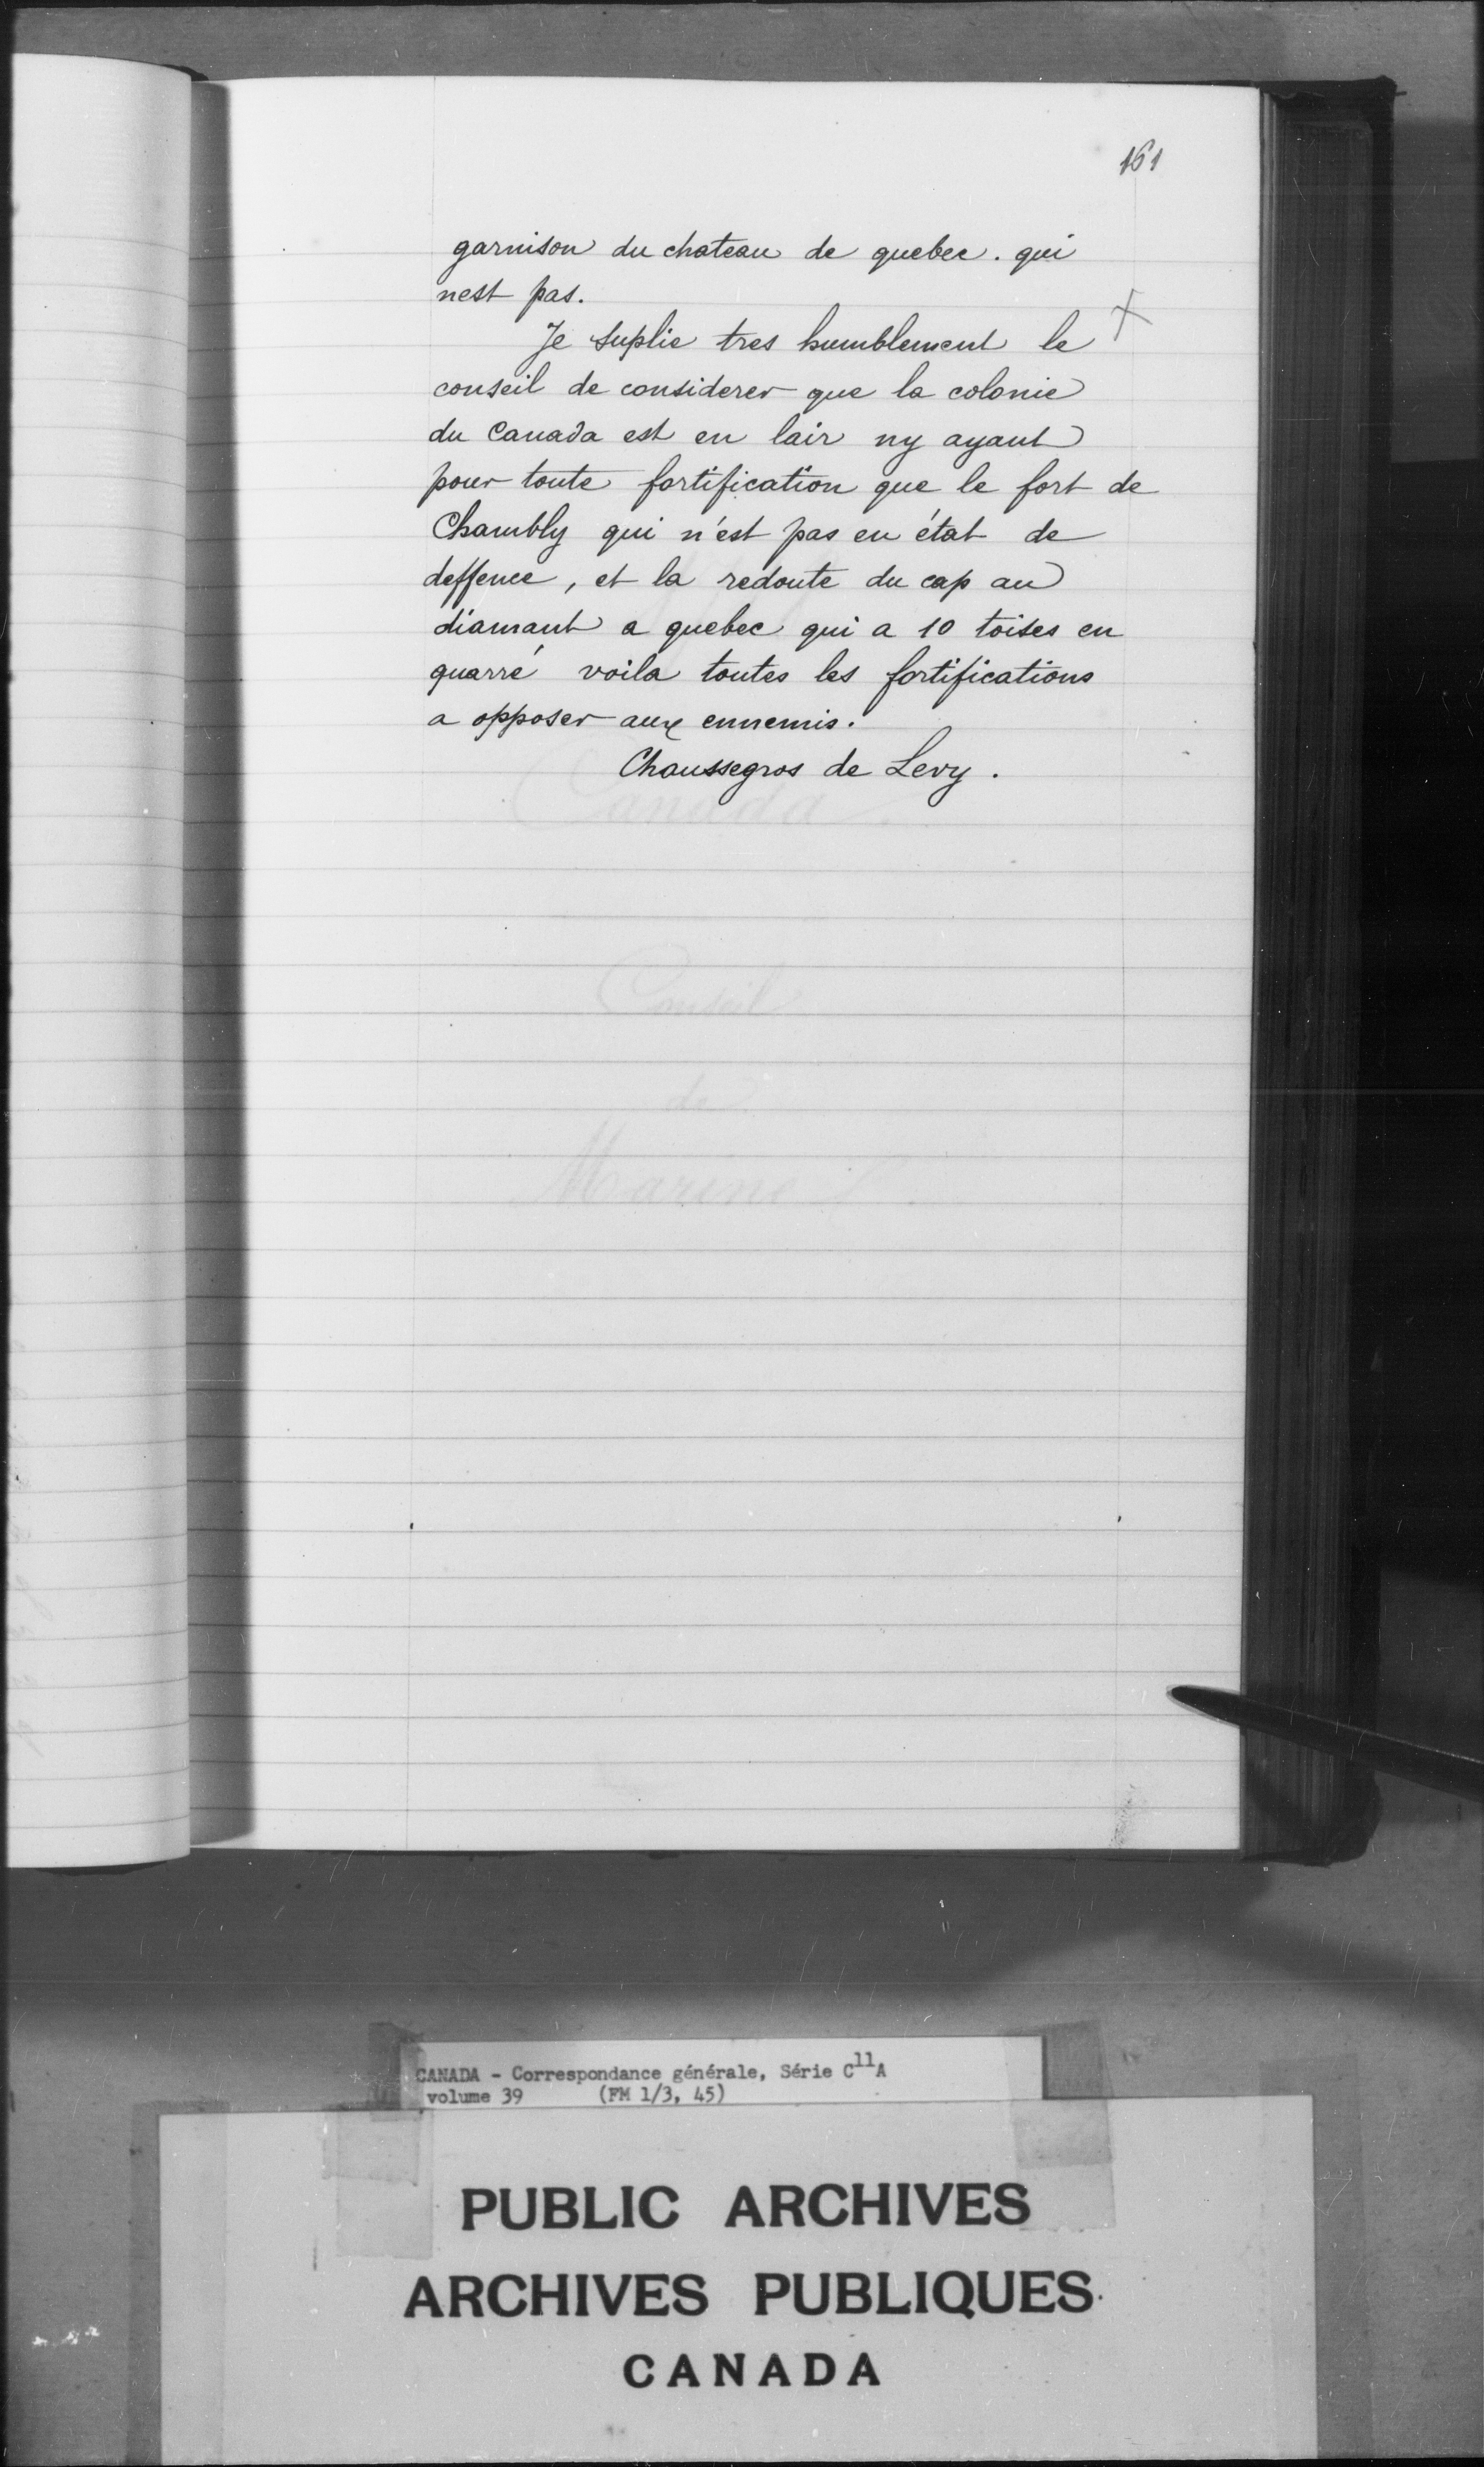 161
garnison du chateau de quebec. qui
nest pas.
Je suplie tres humblement le
conseil de considerer que la colonie
du Canada est en lair ny ayant
pour toute fortification que le fort de
Chambly qui n'est pas en état de
deffence, et la redoute du cap au
diamant a quebec qui a 10 toises en
quarré voila toutes les fortifications
a opposer aux ennemis.
Chaussegros de Levy.
Canada
Conseil
de
Marine
CANADA - Correspondance générale, Série C11A
volume 39 (FM 1/3, 45)
PUBLIC ARCHIVES
ARCHIVES PUBLIQUES
CANADA